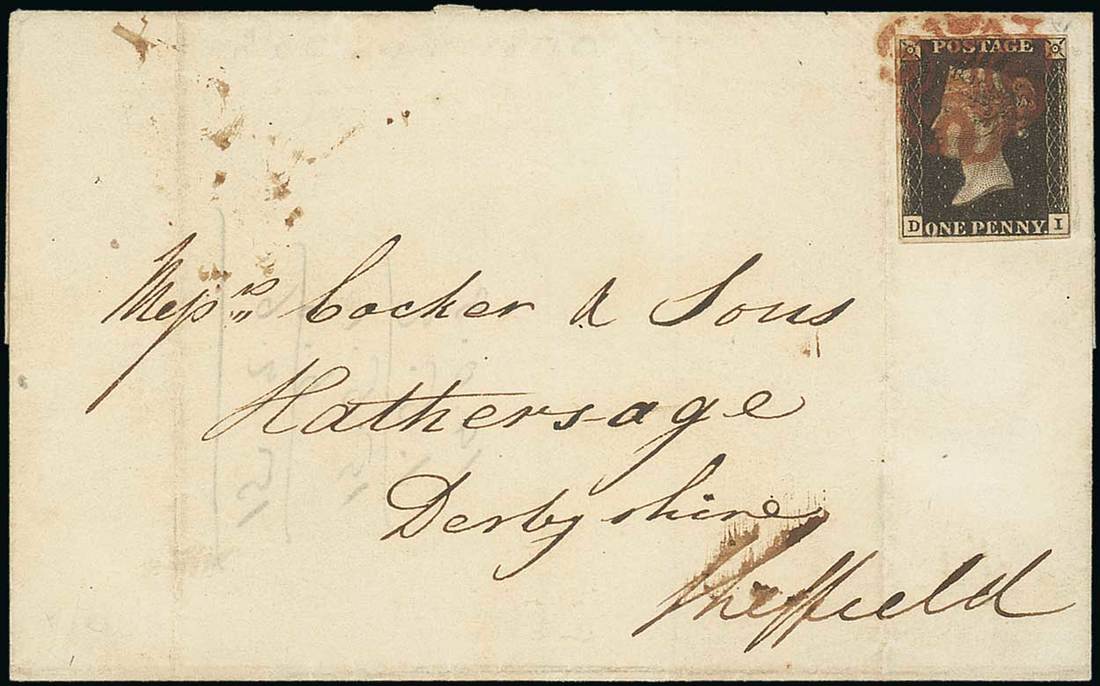 POSTAGE
D ONE PENNY I
Messrs Cocker & Sons
Hathersage
Derbyshire
Sheffield